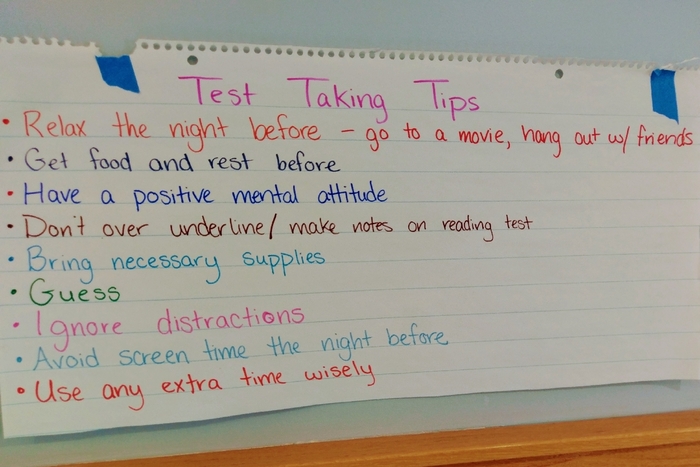 Test Taking Tips
• Relax the night before - go to a movie, hang out w/ friends
• Get food and rest before
• Have a positive mental attitude
• Don't over underline/ make notes on reading test
• Bring necessary supplies
• Guess
• Ignore distractions
• Avoid screen time the night before
• Use any extra time wisely